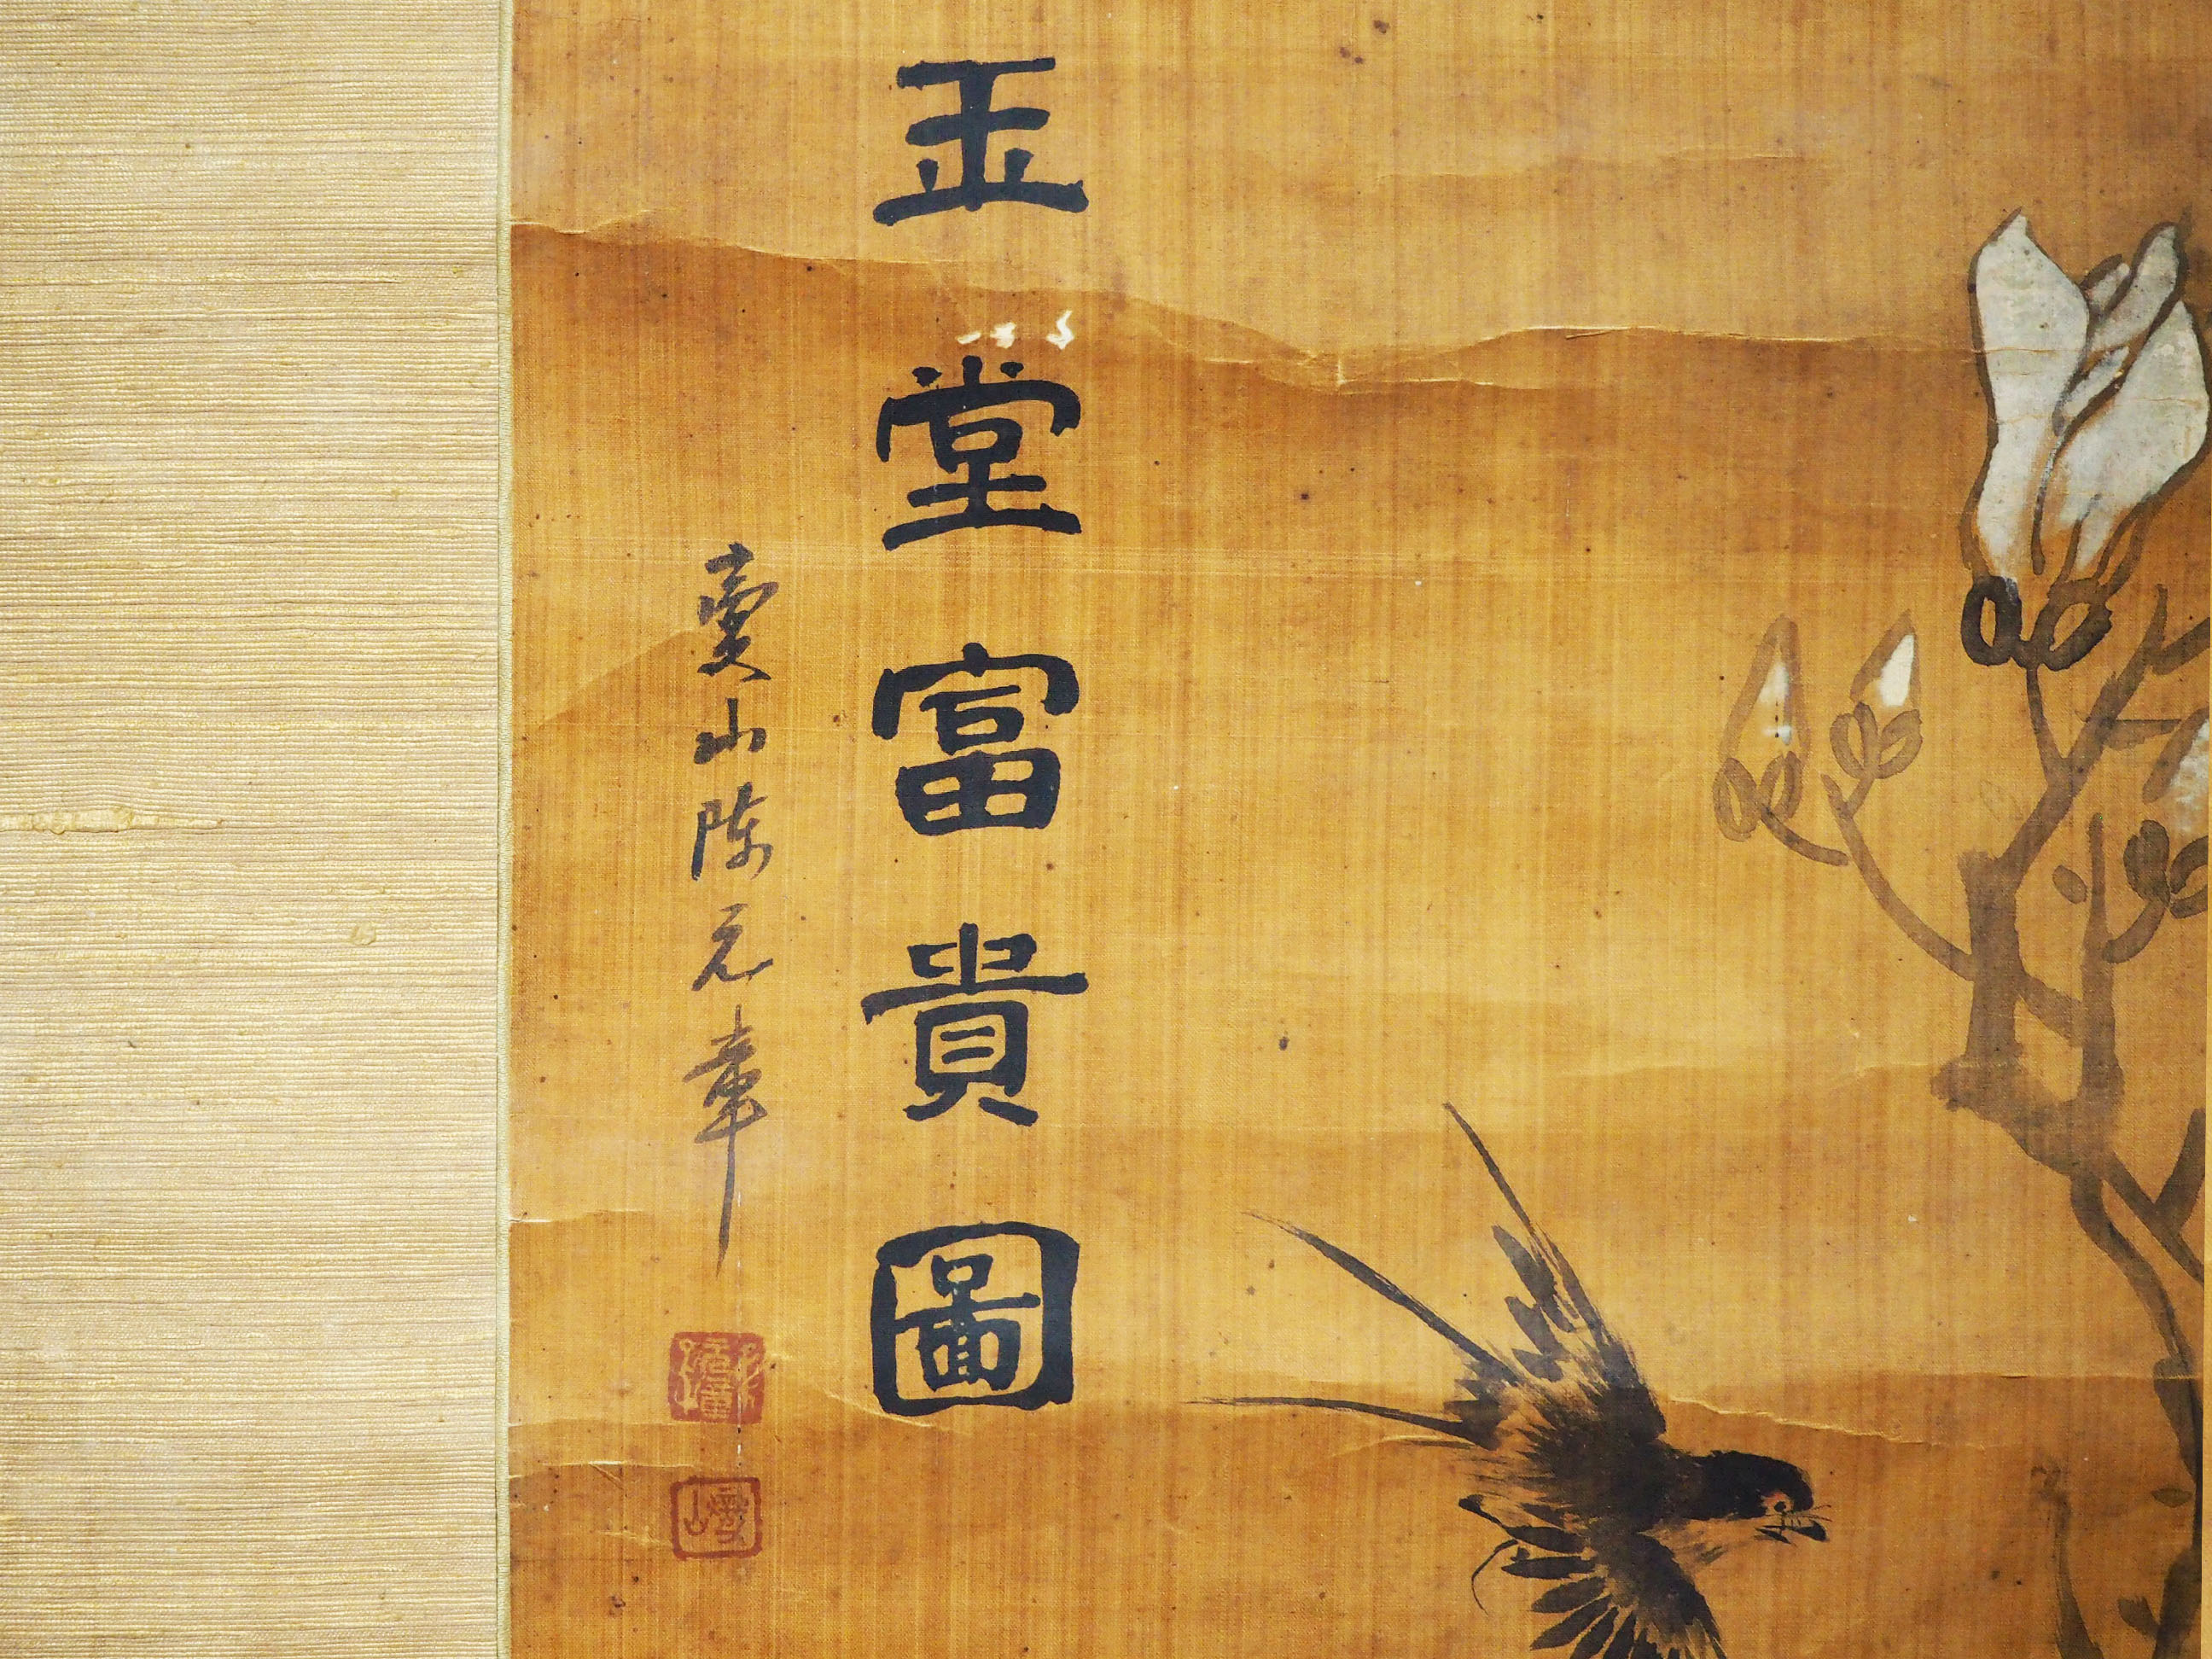 玉堂富貴圖
賣山陳元章